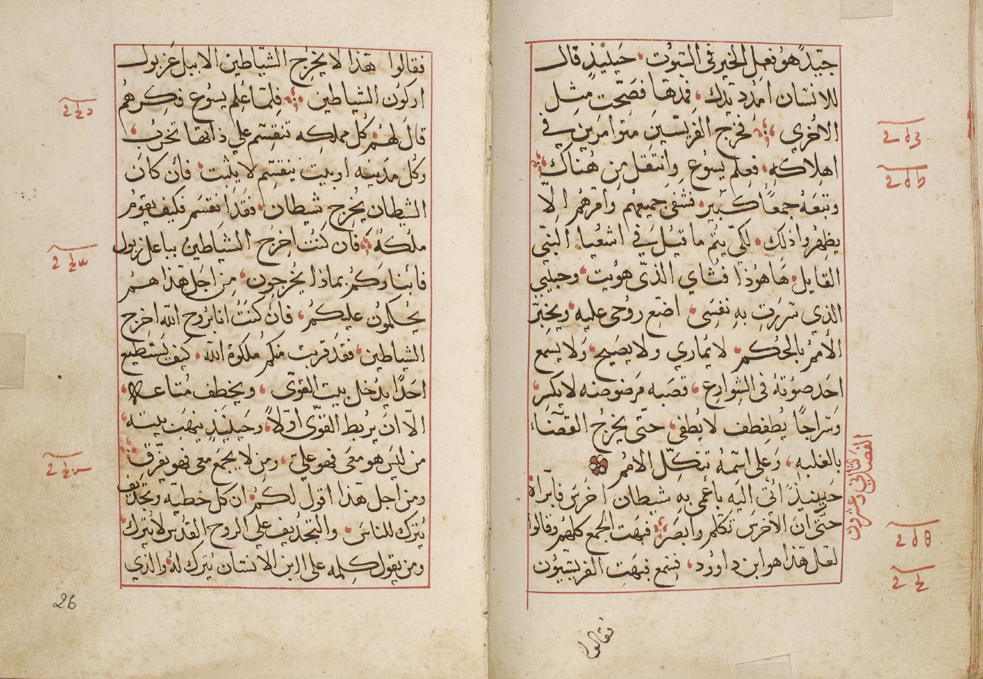 جيّد هو فعل الخير في السبوت حينيذٍ قال
للانسان امدد يدك فمدها فصحّت مثل
الاخرى فخرج الفريسيين متوامرين في
اهلاكه فعلم يسوع وانتقل من هناك
وتبعه جمعاً كبير فشفى جميعهم وامرهم الّا
يظهروا ذلك لكي يتم ما قيل في اشعيا النبي
القايل هاهوذا فتاي الذي هويت وحبيبي
الذي سررت به نفسي اضع روحي عليه ويخبر
الأمم بالحكم لا يماري ولا يصيح ولا يسمع
احد صوته في الشوارع قصبه مرضوضه لا يكسر
وسراجاً يطفطف لا يطفي حتى يخرج القضاء
بالغلبه وعلى اسمه تتكل الامم
حينيذ اتي اليه باعمى به شيطان اخرس فابراه
حتى ان الاخرس تكلم وابصر فبهت الجمع كلهم وقالوا
لعل هذا هو ابن داوود فسمع فبهت الفريسيون
الفصل الثاني وعشرون
فقالوا
فقالوا هذا لا يخرج الشياطين الا ببعل زبول
اركون الشياطين فلما علم يسوع فكرهم
قال لهم كل مملكه تنقسم على ذاتها تخرب
وكل مدينه او بيت ينقسم لا يثبت فان كان
الشيطان يخرج شيطان فقد انقسم فكيف يقوم
ملكه فان كنت اخرج الشياطين بباعل زبول
فابناوكم بماذا يخرجون من اجل هذا هم
يحكمون عليكم فان كنت انا بروح الله اخرج
الشياطين فقد قربت منكم ملكوة الله كيف يستطيع
احداً يدخل بيت القوّى ويخطف متاعه
الّا ان يربط القوّى اولاً وحينيذ ينهب بيته
من ليس هو معي فهو عليّ ومن لا يجمع معي فهو يفرق
ومن اجل هذا اقول لكم ان كل خطيه وتجديف
يترك للناس والتجديف على الروح القدس لا يترك
ومن يقول كلمه على ابن الانسان يترك له والذي
26